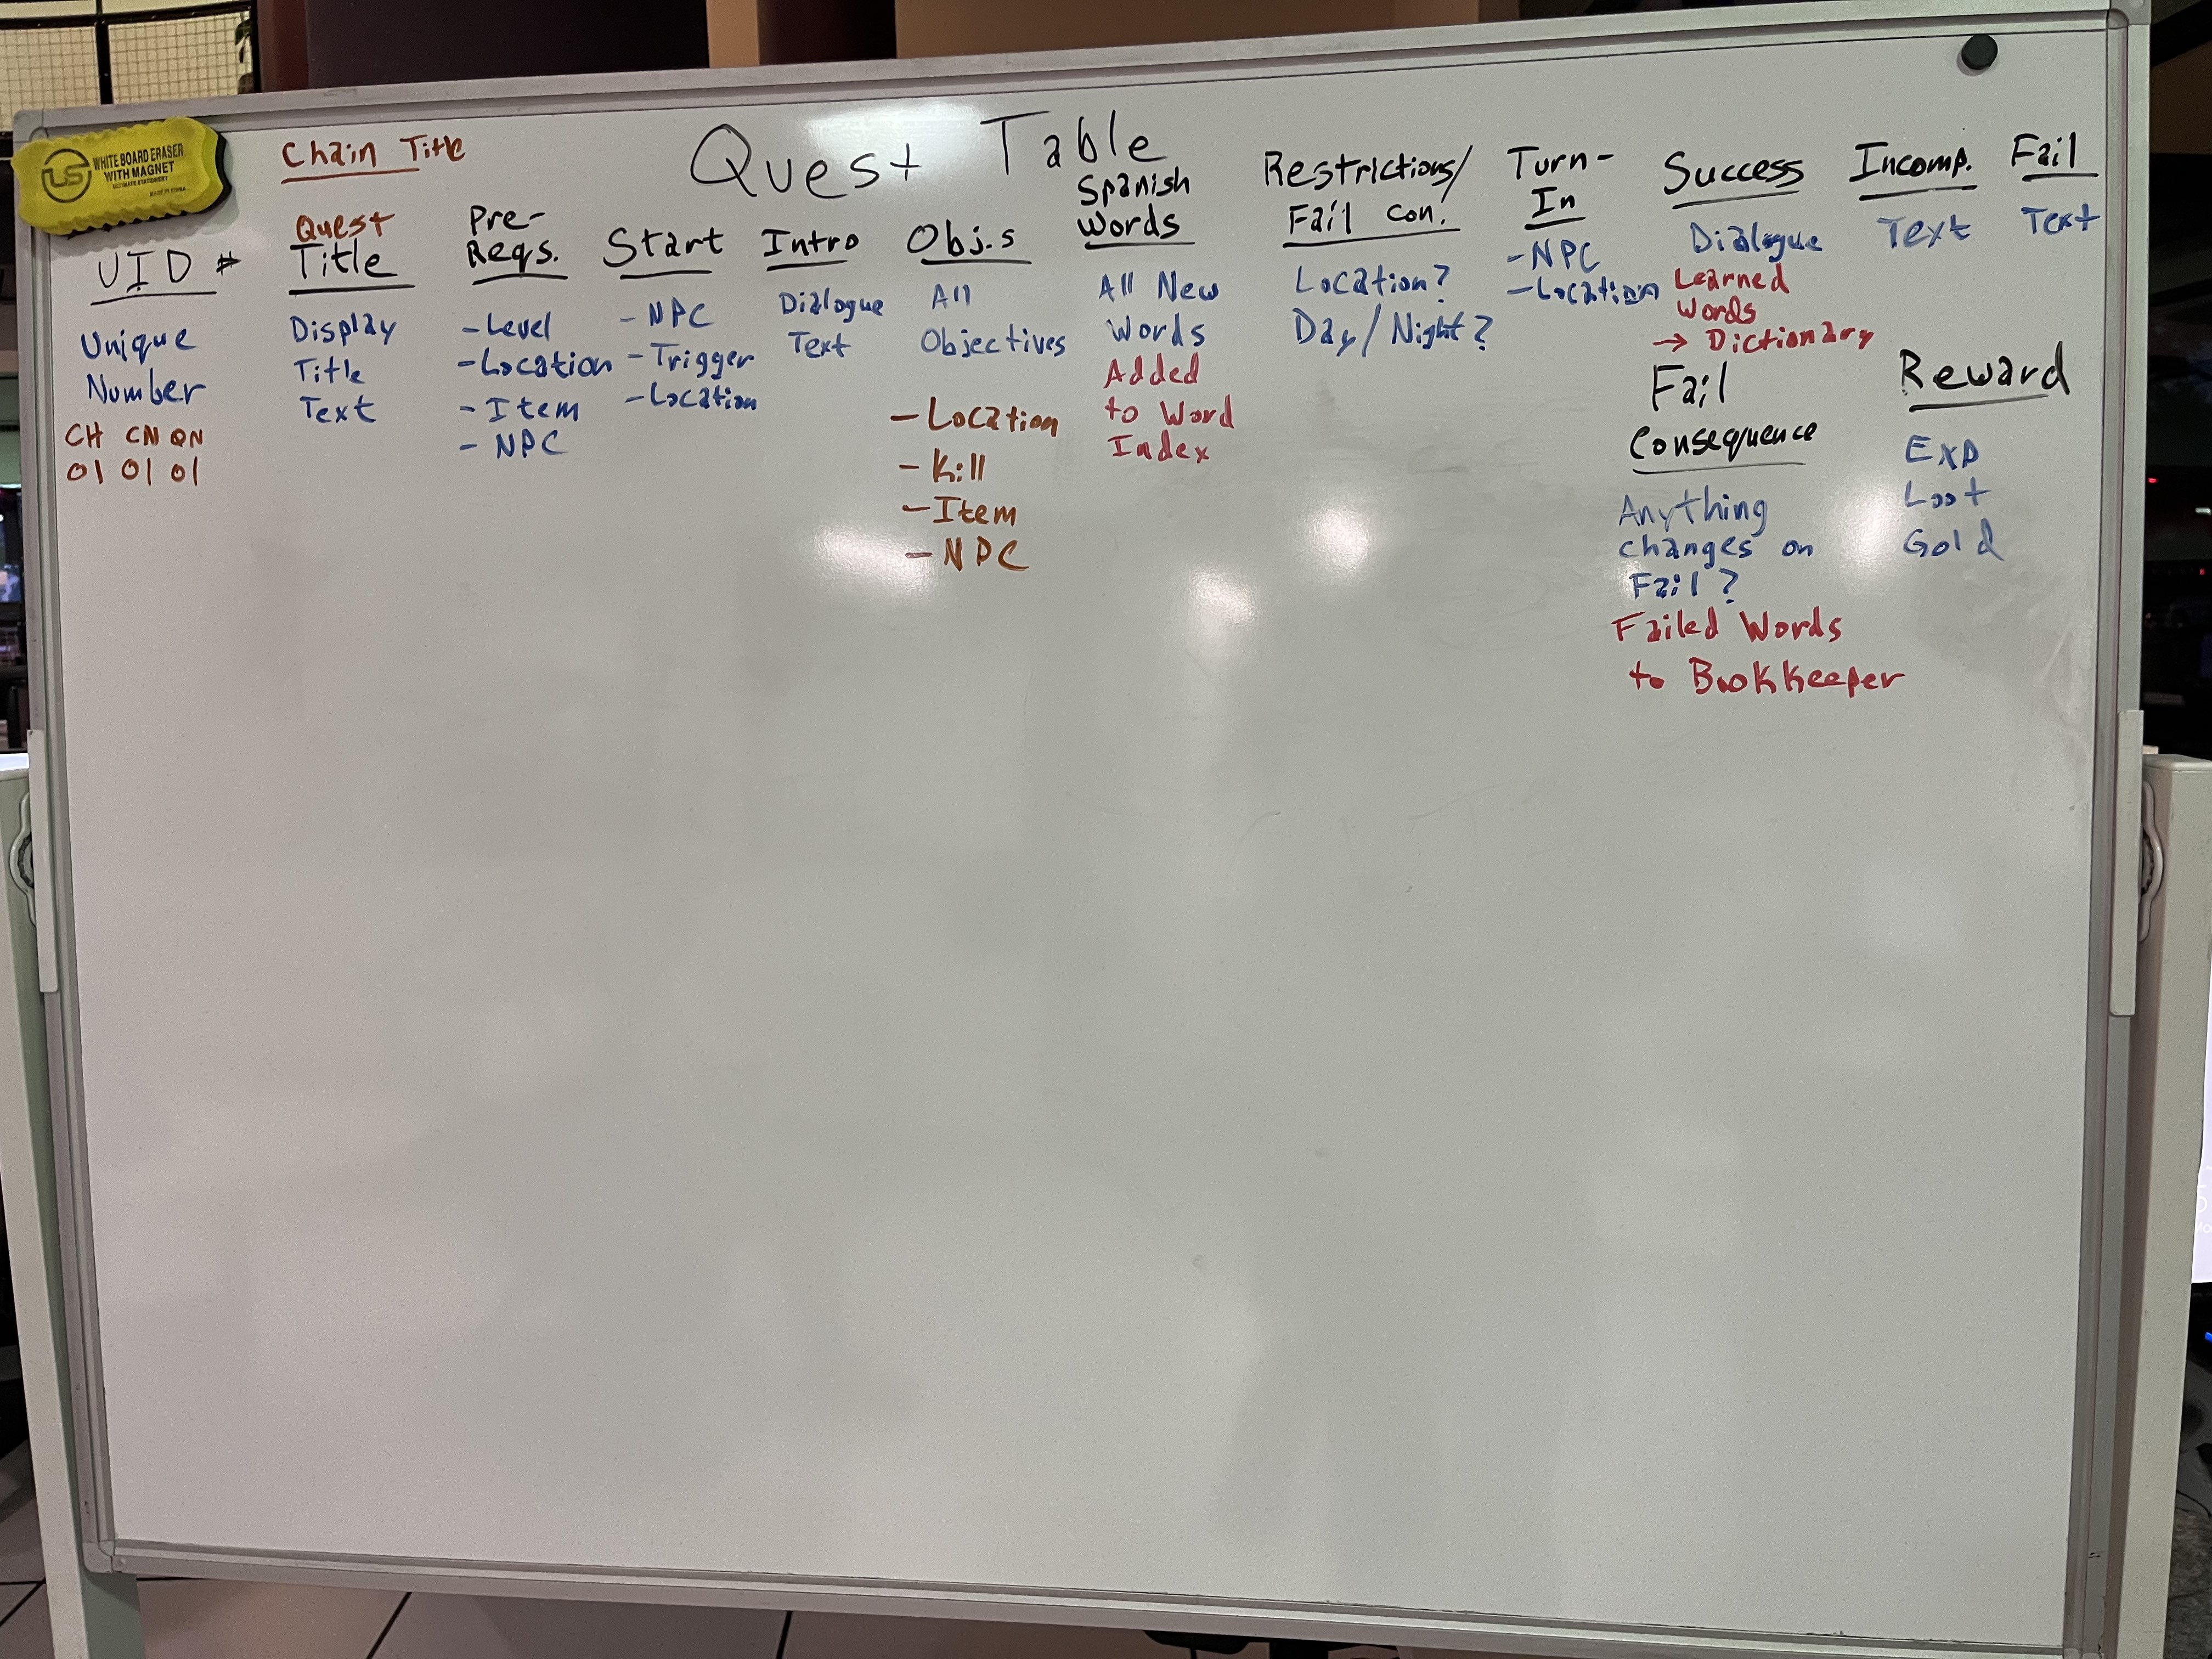 WHITE BOARD ERASER
WITH MAGNET
ULTIMATE STATIONERY
US
Chain Title
Quest Table
UID #
Unique
Number
CH CN QN
01 01 01
Quest
Title
Display
Title
Text
Pre-
Reqs.
- Level
- Location
- Item
- NPC
Start
- NPC
- Trigger
- Location
Intro
Dialogue
Text
Obj.s
All
Objectives
- Location
- Kill
- Item
- NPC
Spanish
Words
All New
Words
Added
to Word
Index
Restrictions/
Fail con.
Location?
Day/Night?
Turn-
In
- NPC
- Location
Success
Dialogue
Learned
Words
→ Dictionary
Fail
Consequence
Anything
changes on
Fail?
Failed Words
to Bookkeeper
Incomp.
Text
Fail
Text
Reward
Exp
Loot
Gold